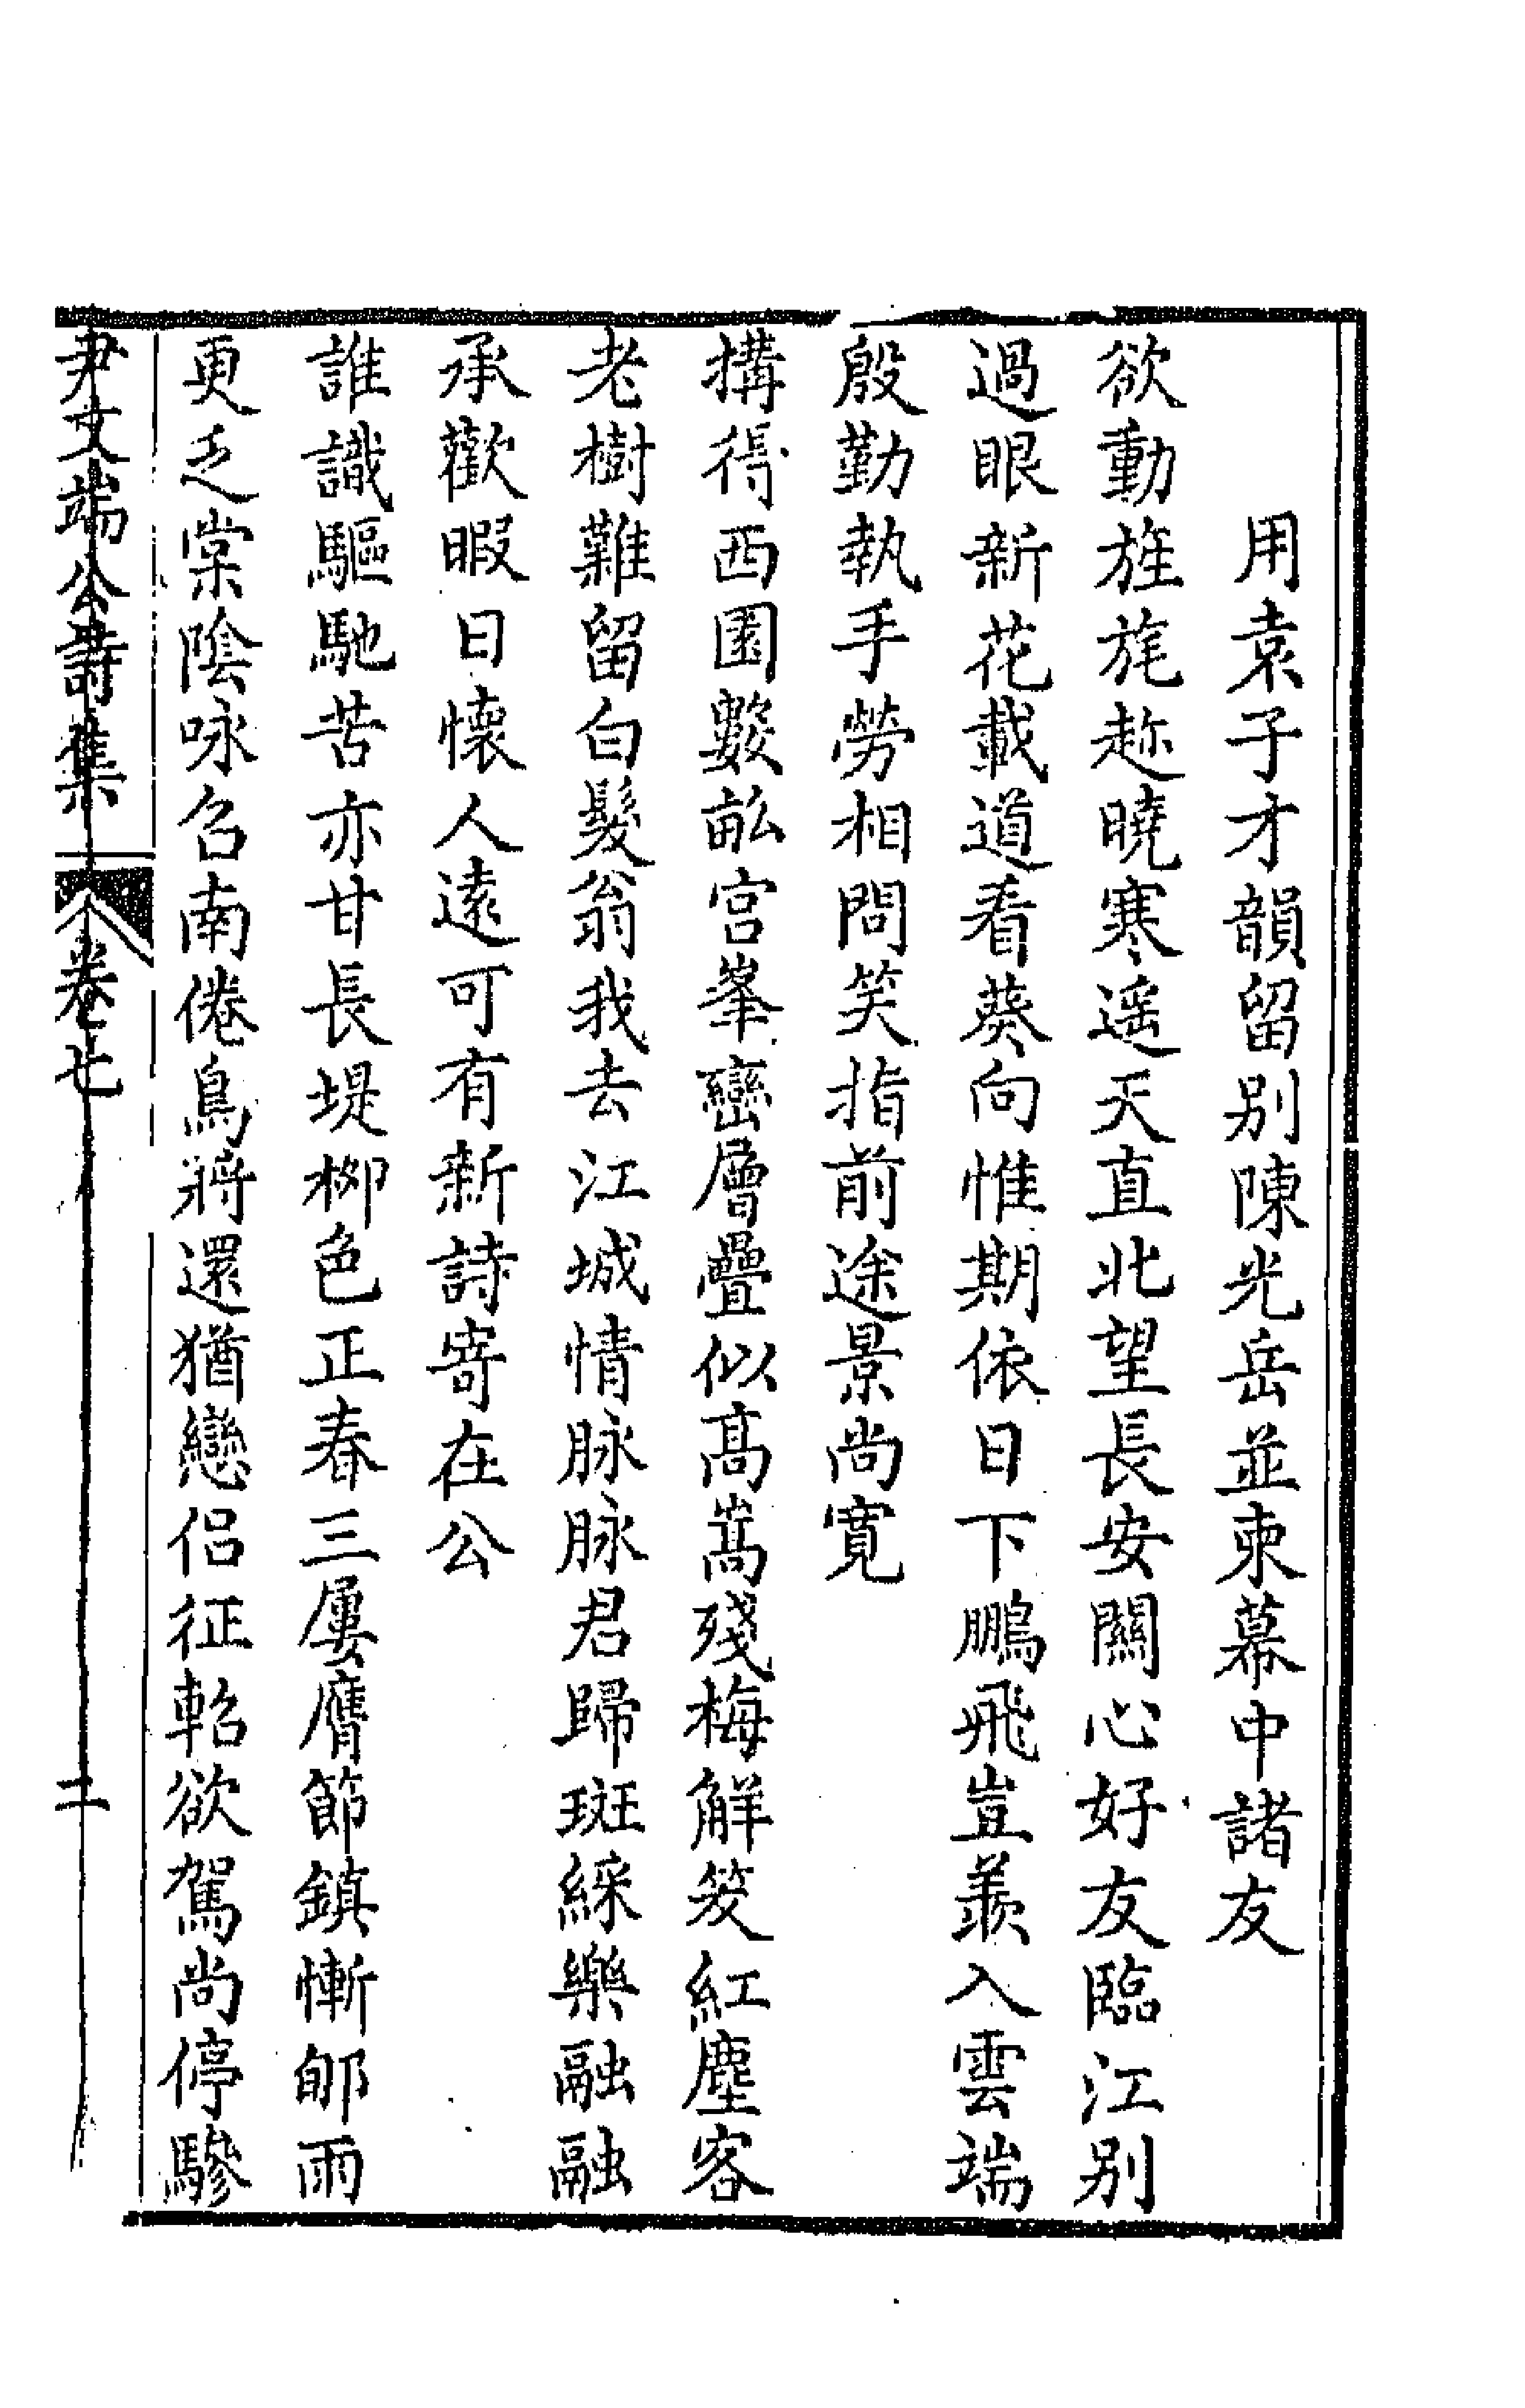 用袁子才韻留别陳光岳並柬幕中諸友
欲動旌旄趂曉寒遥天直北望長安關心好友臨江别
過眼新花載道看葵向惟期依日下鵬飛豈羨入雲端
殷勤執手勞相問笑指前途景尚寛
搆得西園數畝宫峯巒層疊似髙嵩殘梅解笑紅塵客
老樹難留白髮翁我去江城情脉脉君歸斑綵樂融融
承歡暇日懷人遠可有新詩寄在公
誰識驅馳苦亦甘長堤柳色正春三屢膺節鎮慚郇雨
更乏棠陰咏召南倦鳥將還猶戀侣征軺欲駕尚停驂
尹文端公詩集 卷七 二